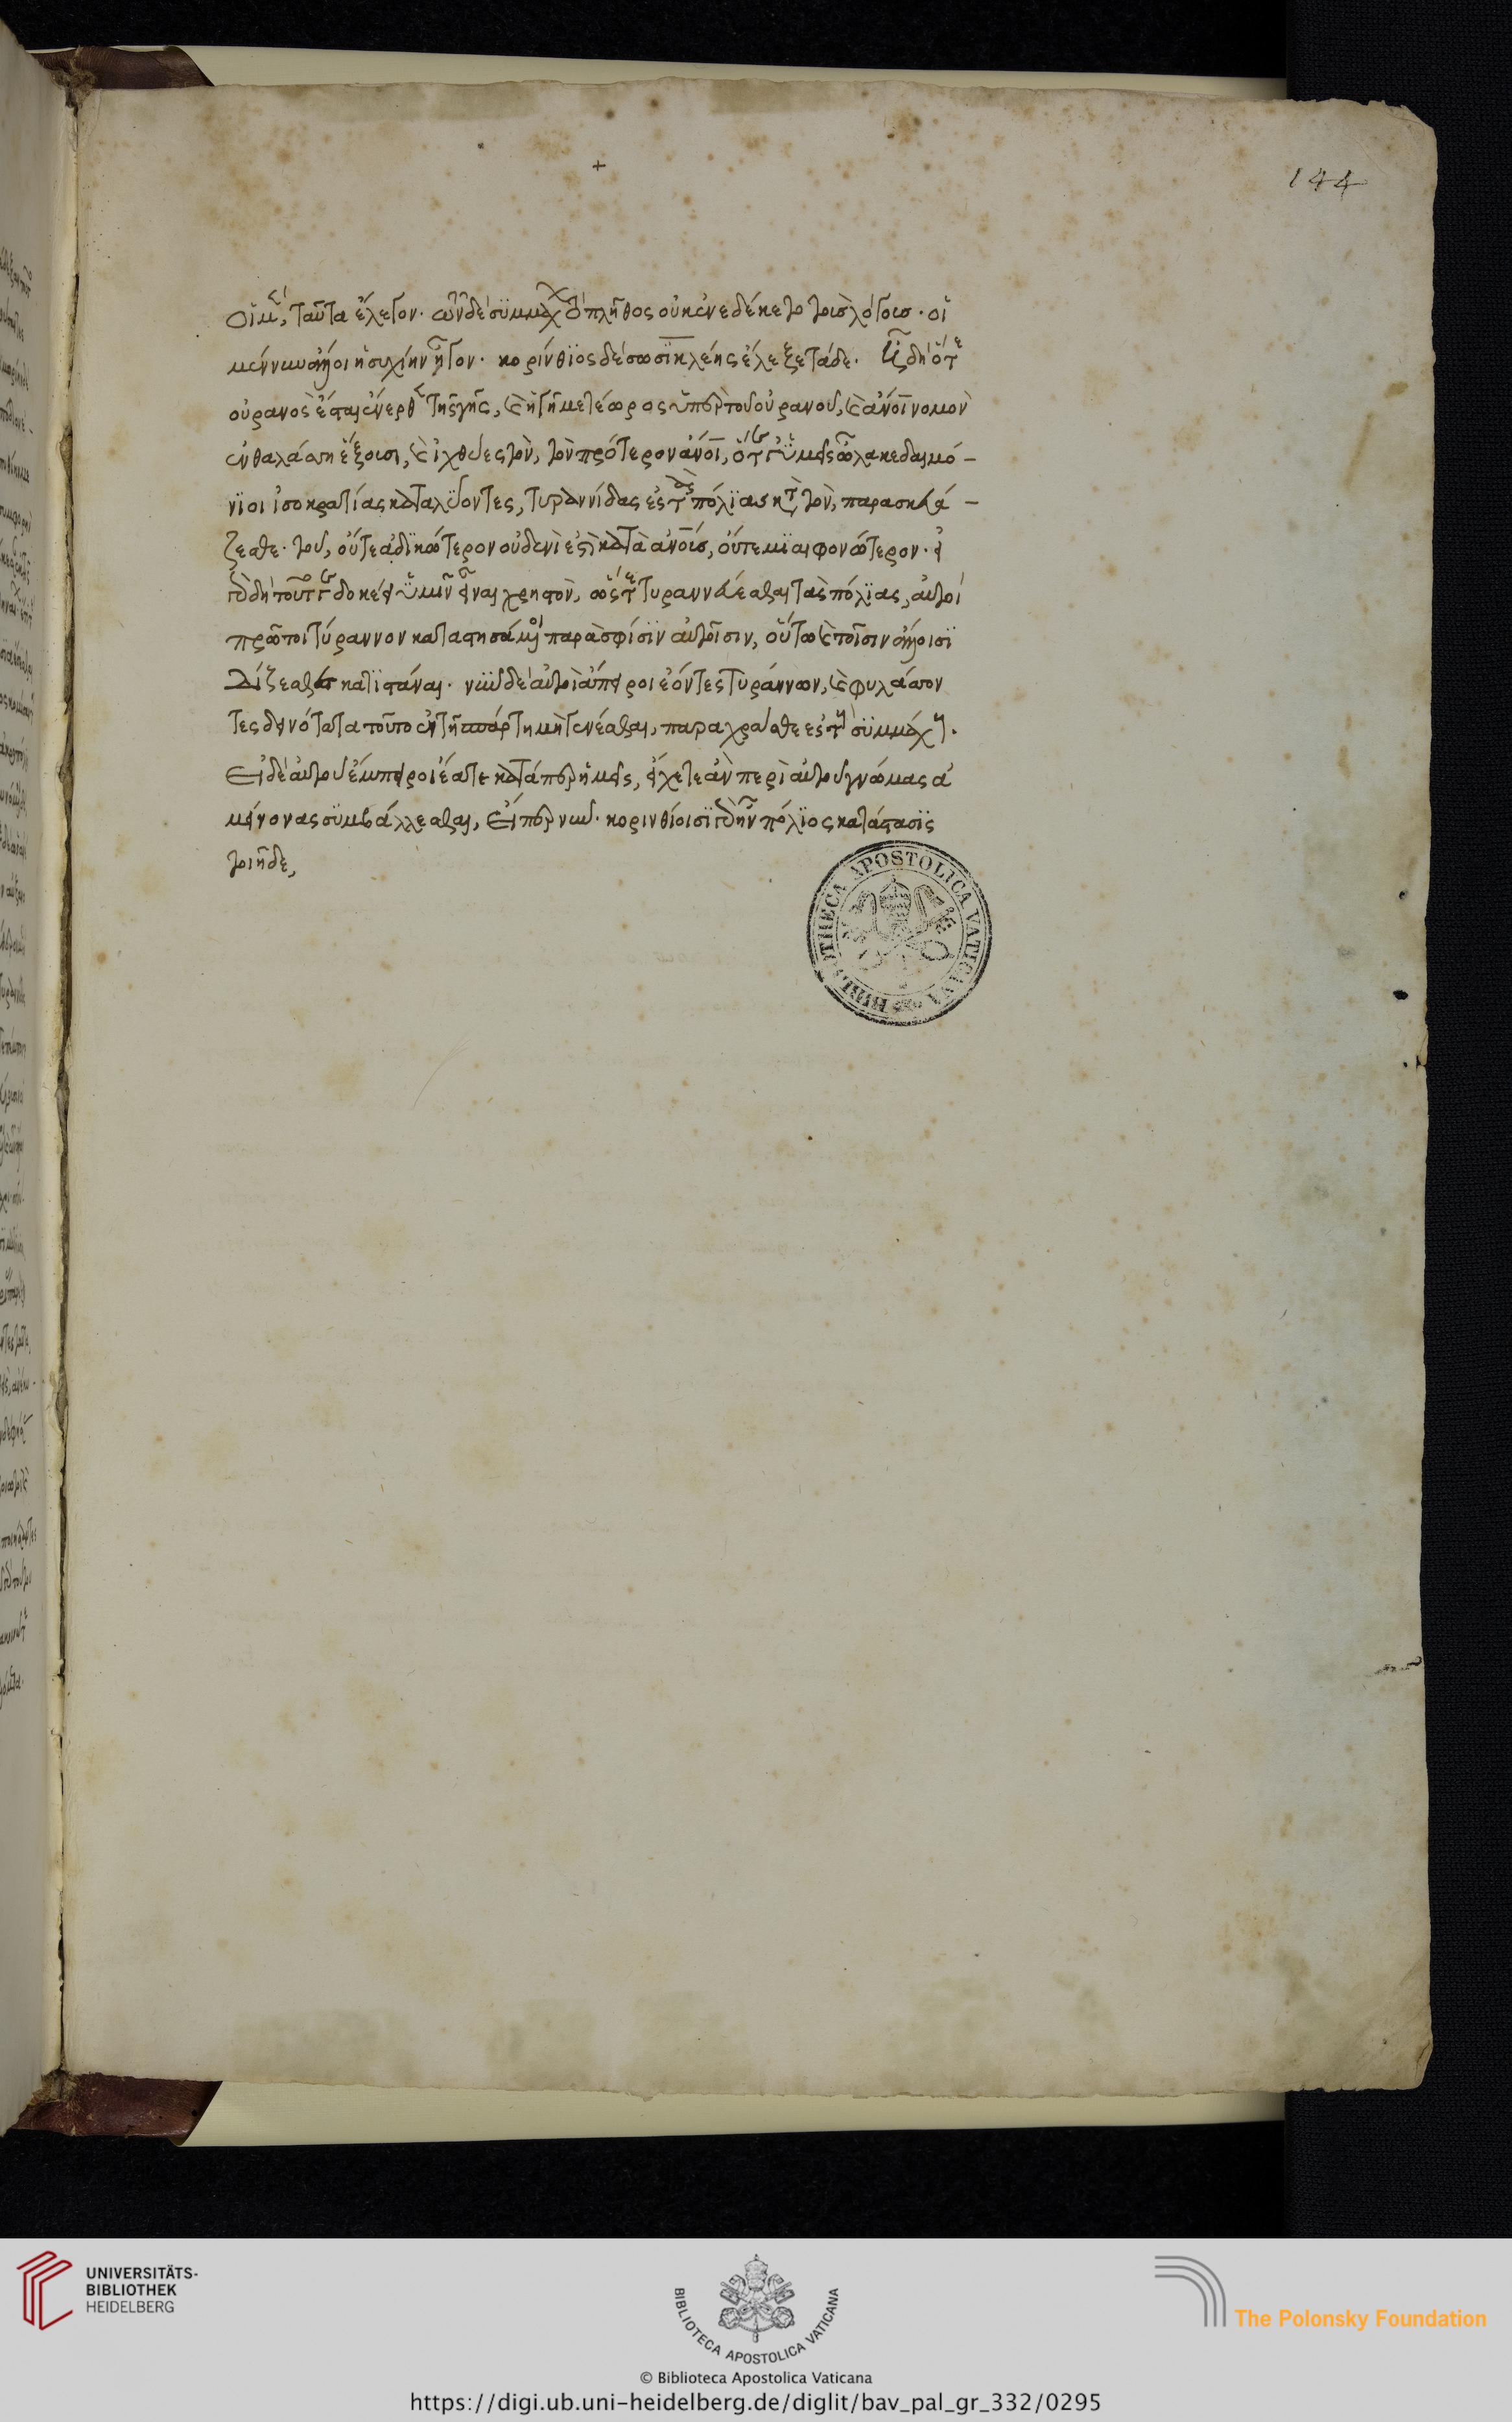 οἱ μὲν, ταῦτα ἔλεγον. τῶν δὲ συμμάχ τὸ πλῆθος οὐκ ἐνεδέκετο τοὺς λόγους. οἱ
μέν νυν ἄλλοι ἡσυχίην ἦγον. κορίνθϊος δὲ σωσϊκλέης ἔλεξε τάδε. ἦ δὴ ὅτε
οὐρανὸς ἔσται ἔνερθε τῆς γῆς, καὶ ἡ γῆ μετέωρος ὑπὲρ τοῦ οὐρανοῦ, καὶ ἄνοι νομὸν
ἐν θαλάσση ἕξουσι, καὶ ἰχθύες τὸν, τὸν πρότερον ἄνοι, ὅτε γε ὑμεῖς ὦ λακεδαιμό-
νϊοι ἰσοκρατίας καταλύοντες, τυραννίδας ἐς τὰς πόλϊας κατὰ τὸν, παρασκευά-
ζεσθε. τοῦ, οὔτε ἀδϊκώτερον οὐδενὶ ἐστὶ κατὰ ἀνους, οὔτε μϊαιφονώτερον. εἰ
γὰρ δὴ τοῦτό γε δοκέει ὑμῖν εἶναι χρηστὸν, ὥστε τυραννεύεσθαι τὰς πόλϊας, αὐτοὶ
πρῶτοι τύραννον καταστησάμενοι παρὰ σφίσϊν αὐτοῖσιν, οὕτω καὶ τοῖσιν ἄλλοισϊ
δίζεσθε κατϊστάναι. νῦν δὲ αὐτοὶ ἄπειροι ἐόντες τυράννων, καὶ φυλάσσον
τες δεινότατα τοῦτο ἐν τῆ σπάρτη μὴ γενέσθαι, παραχρᾶσθε ἐς τοὺς συμμάχους.
εἰ δὲ αὐτοῦ ἔμπειροι ἔατε κατά περ ἡμεῖς, εἴχετε ἂν περὶ αὐτοῦ γνώμας ἀ
μείνονας συμβάλλεσθαι, εἴπερ νῦν. κορινθίοισϊ γὰρ ἦν πόλϊος κατάστασϊς
τοιῆδε,
144
BIBLIOTHECA APOSTOLICA VATICANA
UNIVERSITÄTS-
BIBLIOTHEK
HEIDELBERG
BIBLIOTECA APOSTOLICA VATICANA
The Polonsky Foundation
© Biblioteca Apostolica Vaticana
https://digi.ub.uni-heidelberg.de/diglit/bav_pal_gr_332/0295